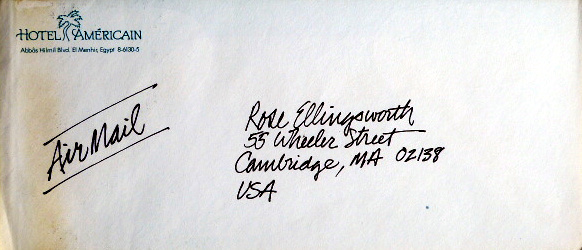 HOTEL AMÉRICAIN
Abbās Hilmil Blvd. El Menhir, Egypt 8-6130-5
Air Mail
Rose Ellingsworth
55 Wheeler Street
Cambridge, MA 02138
USA